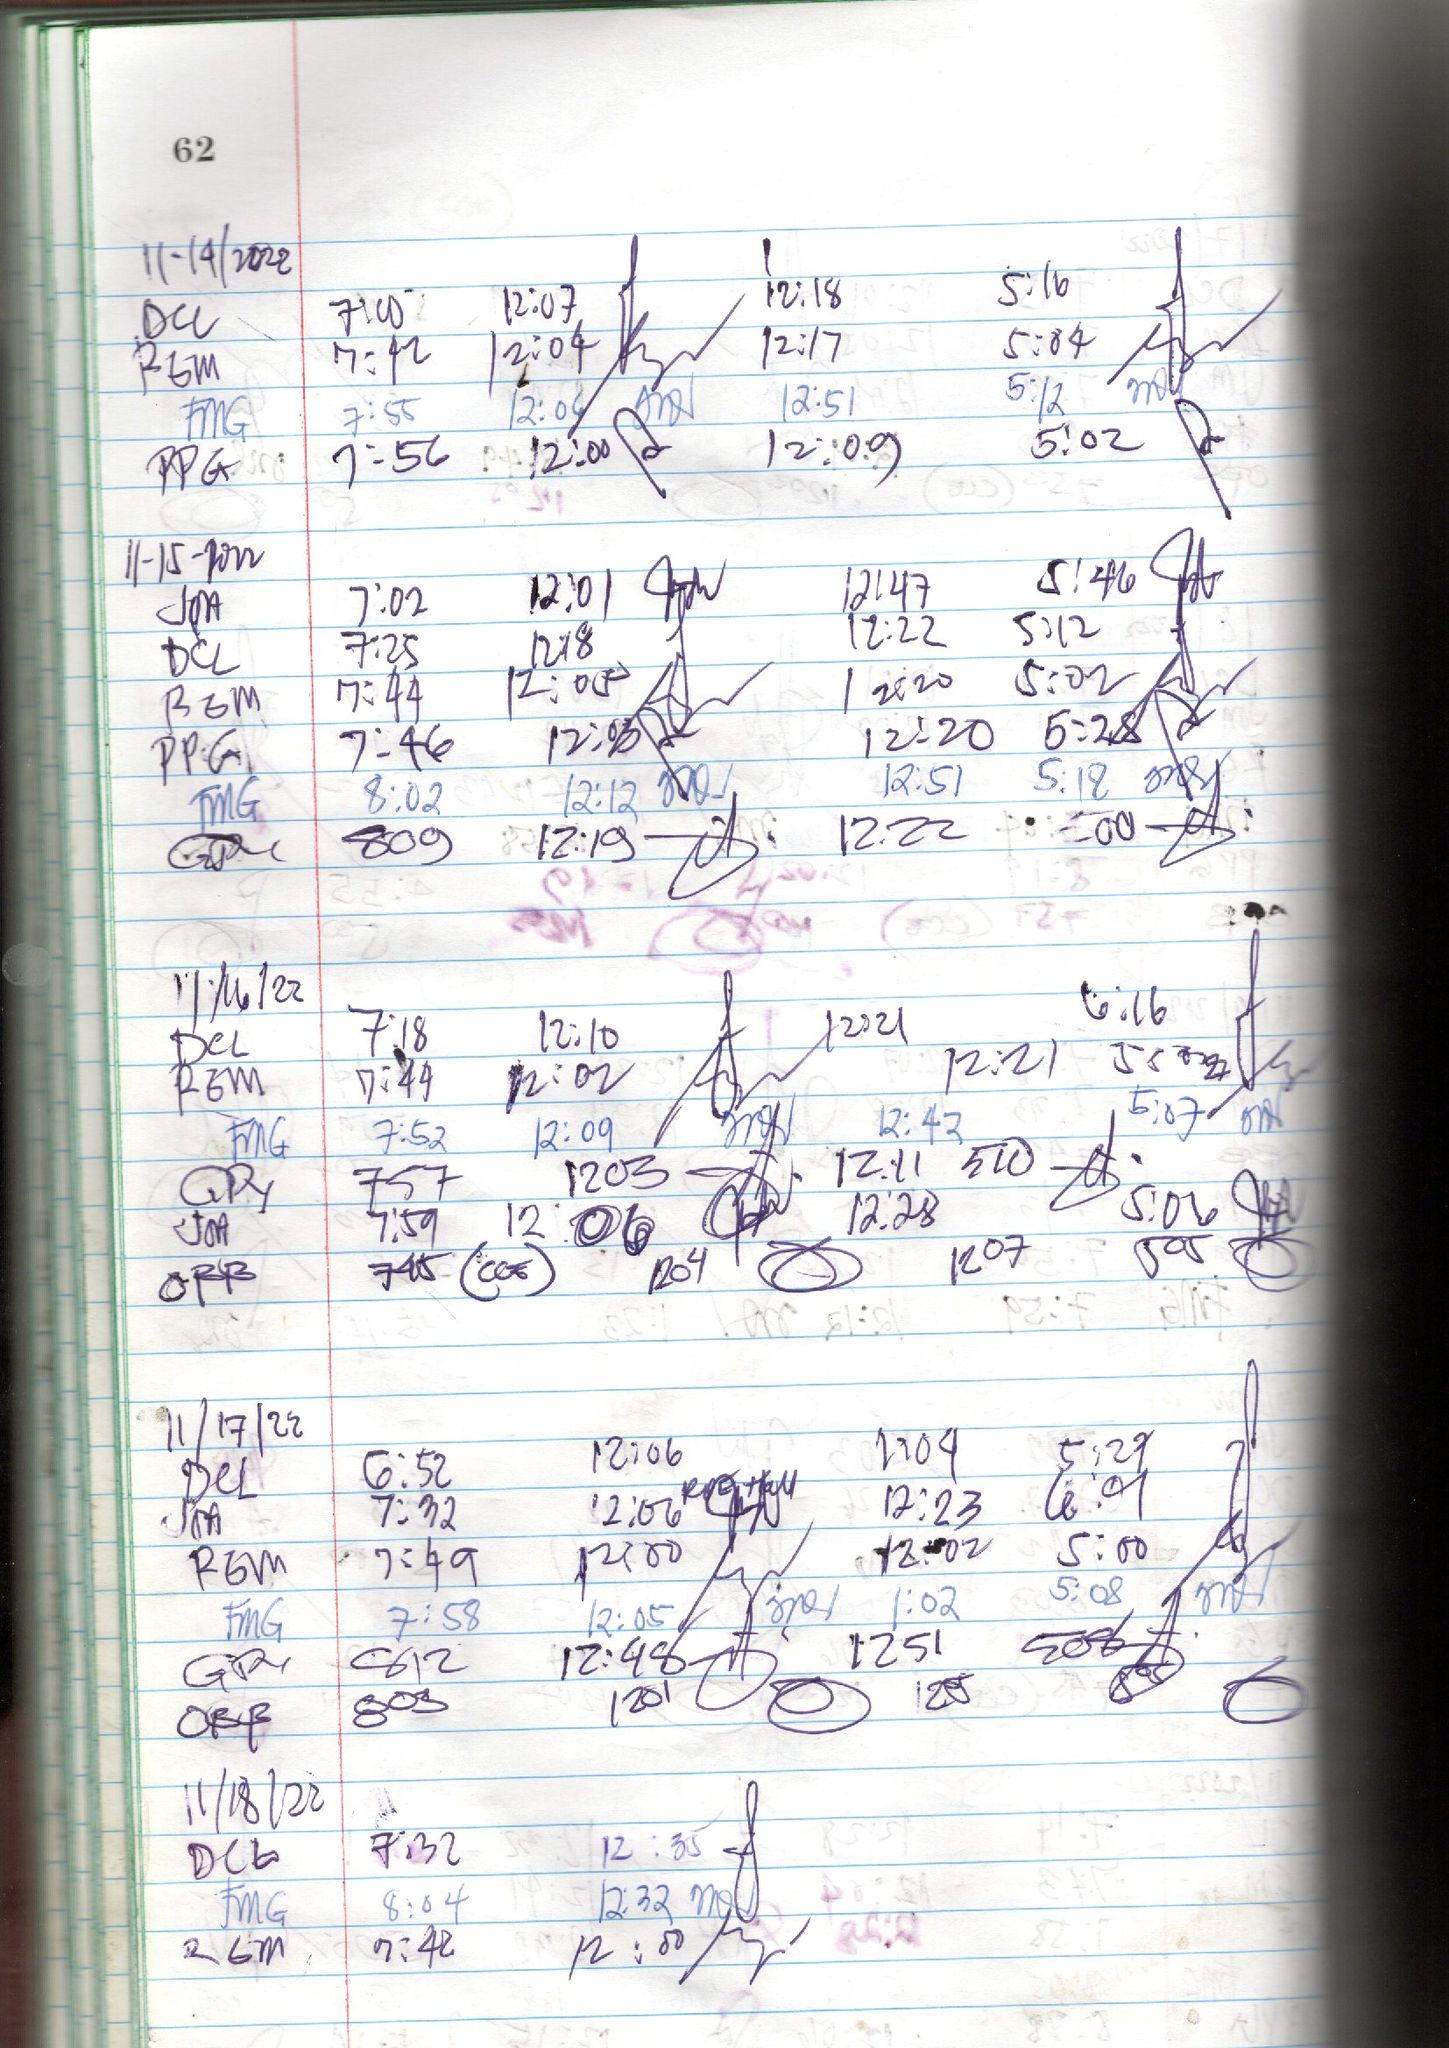 62
11-14/2022
DCL 7:10 12:07 12:18 5:16
RGM 7:42 12:04 12:17 5:04
FMG 7:55 12:06 12:51 5:12
PPG 7:56 12:00 12:09 5:02
11-15-2022
JOA 7:02 12:01 12:47 5:46
DCL 7:25 12:18 12:22 5:12
RGM 7:44 12:05 12:20 5:02
PPG 7:46 12:03 12:20 5:28
FMG 8:02 12:12 12:51 5:18
809 12:19 12:22 500
11/16/22
DCL 7:18 12:10 12:21 6:16
RGM 7:44 12:02 12:21
FMG 7:52 12:09 12:42 5:07
757 1203 12:11 510
JOA 7:59 12:06 12:28 5:06
745 1204 1207 505
11/17/22
DCL 6:52 12:06 1:04 5:29
JOA 7:32 12:06 12:23
RGM 7:49 12:00 12:02 5:00
FMG 7:58 12:05 1:02 5:08
812 12:48 1251 508
803 1201 1205
11/18/22
DCL 7:32 12:35
FMG 8:04 12:32
RGM 7:42 12:00